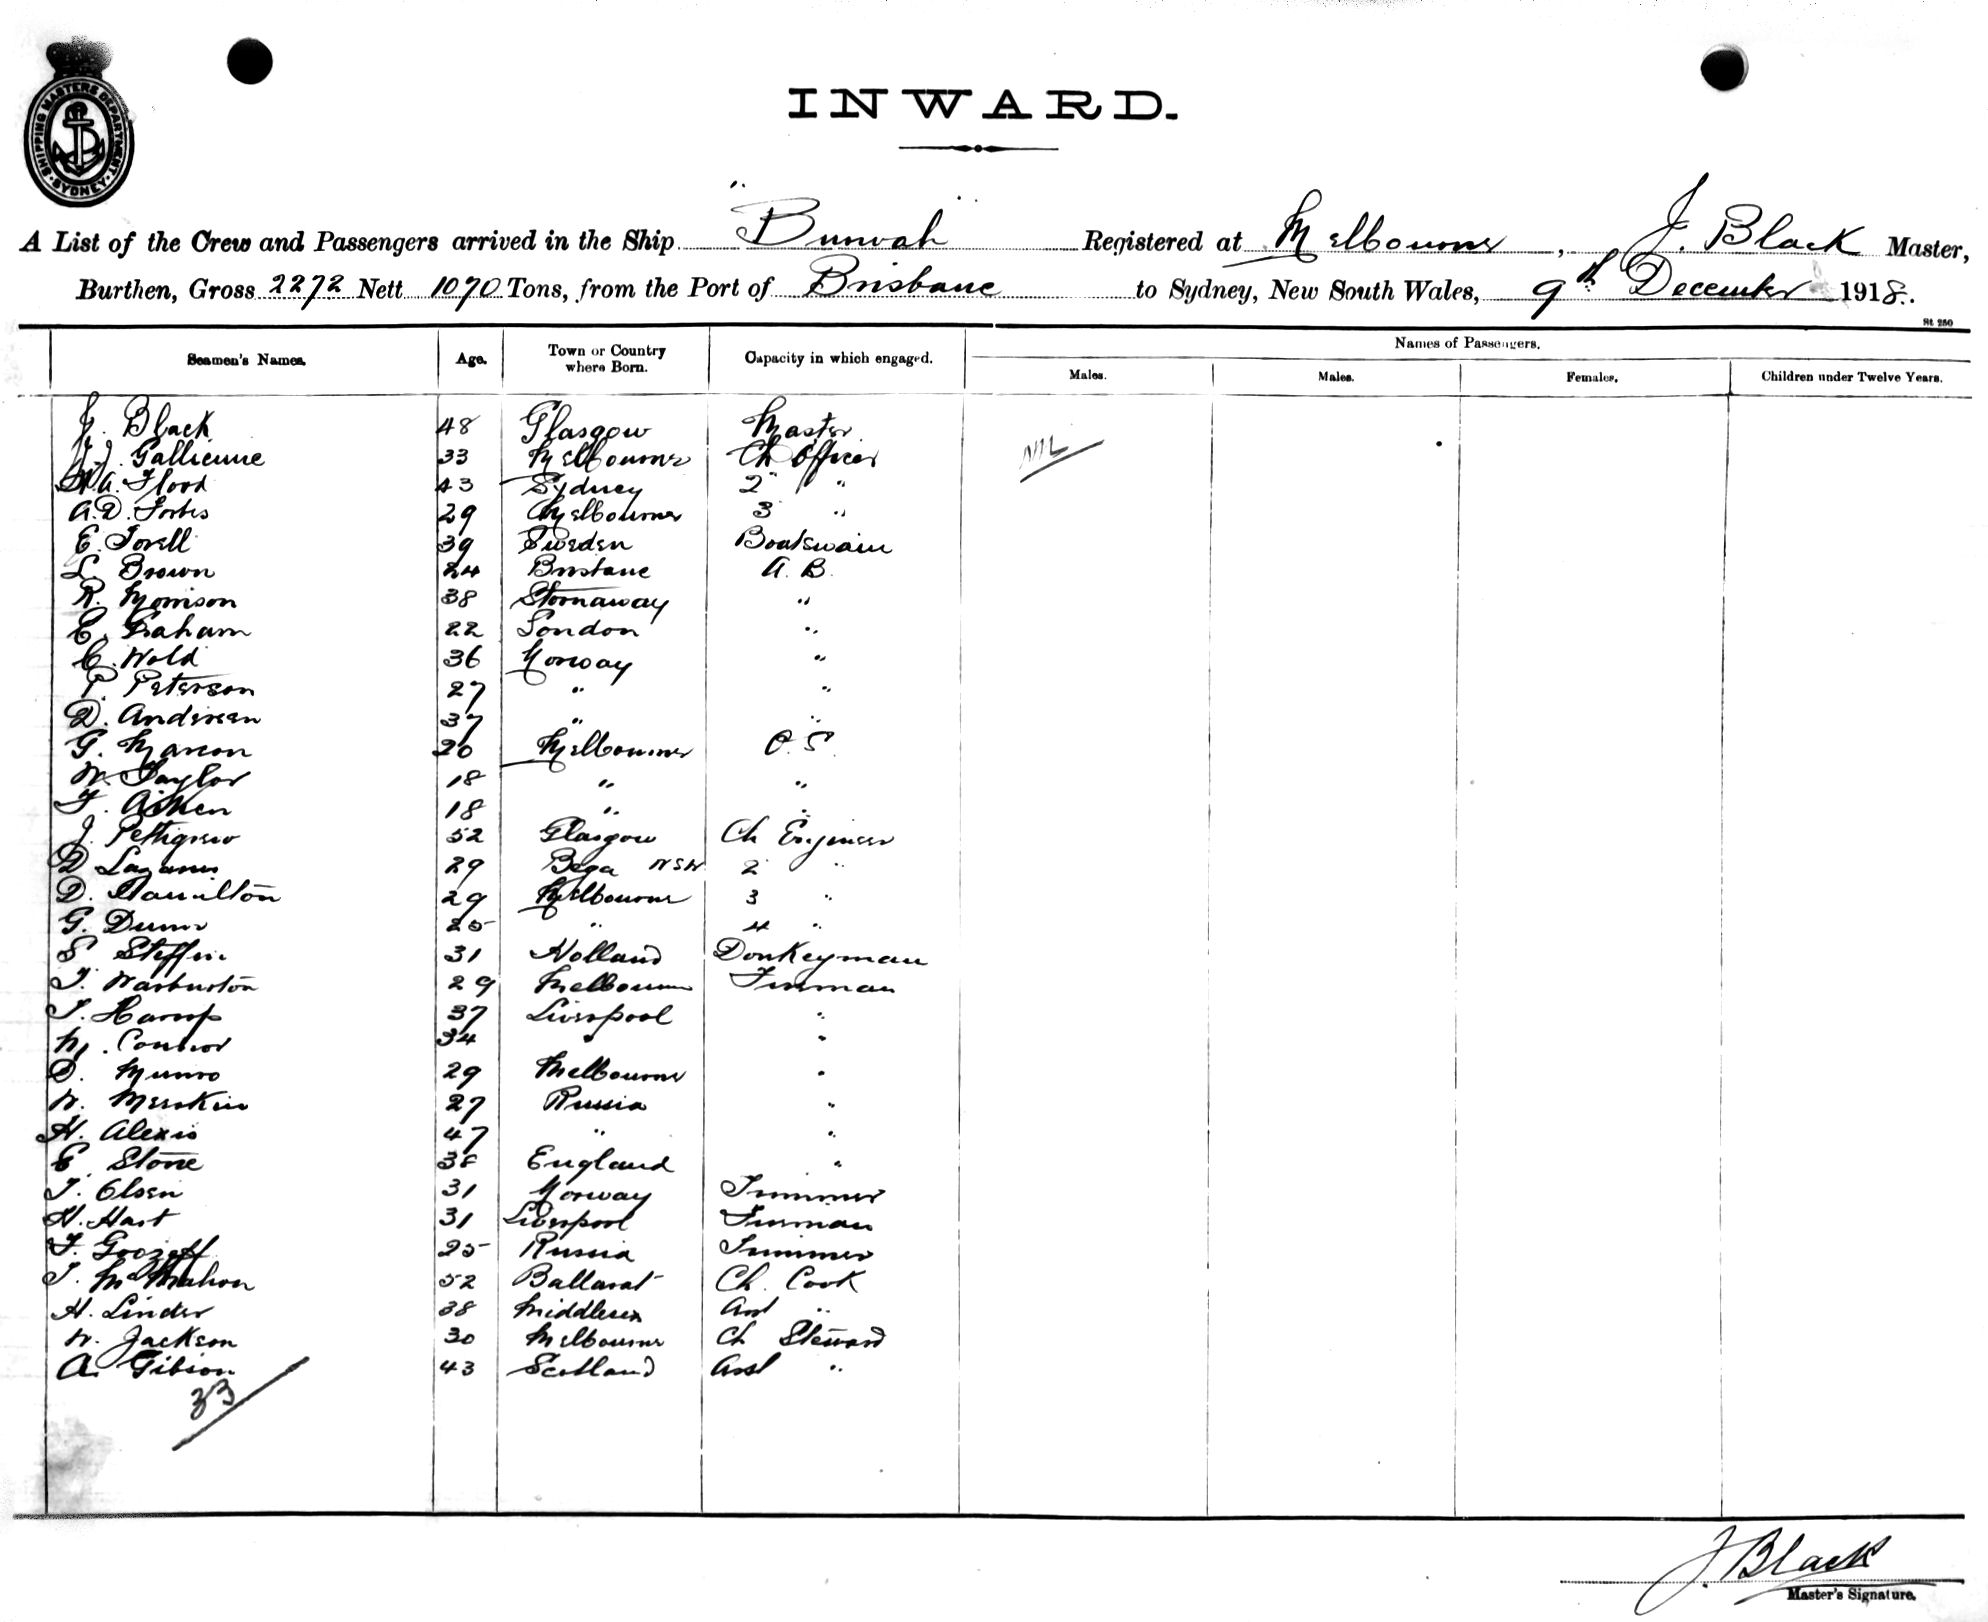 SHIPPING MASTERS DEPARTMENT
SYDNEY
INWARD.
A List of the Crew and Passengers arrived in the Ship "Burwah" Registered at Melbourne, J. Black Master,
Burthen, Gross 2272 Nett 1070 Tons, from the Port of Brisbane to Sydney, New South Wales, 9th December 1918.
St 250
Seamen's Names. Age. Town or Country where Born. Capacity in which engaged. Names of Passengers.
Males. Males. Females. Children under Twelve Years.
J. Black 48 Glasgow Master NIL
J. Gallienne 33 Melbourne Ch Officer
Flood 43 Sydney 2 "
A.D. Forbes 29 Melbourne 3 "
E. Torell 39 Sweden Boatswain
L. Brown 24 Brisbane A.B.
R. Morrison 38 Stornaway "
E. Graham 22 London "
C. Wold 36 Norway "
P. Peterson 27 " "
D. Andersen 37 " "
G. Marson 20 Melbourne O.S.
W. Taylor 18 " "
F. Aitken 18 " "
J. Pettigrew 52 Glasgow Ch Engineer
D Lazarus 29 Bega NSW 2 "
D. Hamilton 29 Melbourne 3 "
G. Dunn 25 " 4 "
S Steffin 31 Holland Donkeyman
T. Warburton 29 Melbourne Fireman
T. Harrop 37 Liverpool "
M. Connor 34 " "
D. Munro 29 Melbourne "
W. Merskin 27 Russia "
H. Alexis 47 " "
E. Stone 38 England "
T. Olsen 31 Norway Trimmer
H. Hart 31 Liverpool Fireman
F. Goozeff 25 Russia Trimmer
T. McMahon 52 Ballarat Ch. Cook
H. Linder 38 Middlesex Asst "
W. Jackson 30 Melbourne Ch Steward
A. Gibson 43 Scotland Asst "
33
J. Black
Master's Signature.